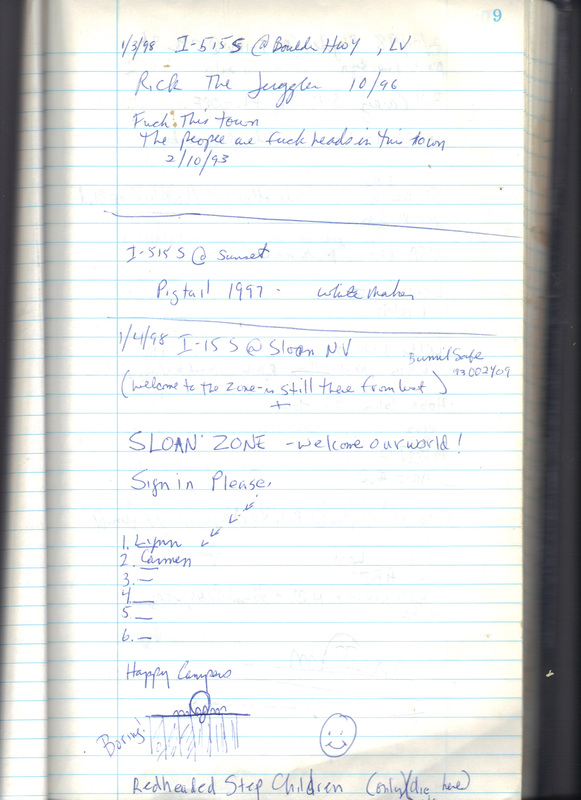 9
1/3/98 I-515 S @ Boulder Hwy, LV
Rick The Juggler 10/96
Fuck This town
The people are fuck heads in this town
2/10/93
I-515 S @ Sunset
Pigtail 1997.
1/4/98 I-15 S @ Sloan NV
Safe
(Welcome to the zone-is still there from last)
+
SLOAN ZONE - welcome our world!
Sign in Please,
1. Lynn
2. Carmen
3. —
4. —
5 —
6. —
Happy Campers
Boring!
Redheaded Step Children (only)(die here)